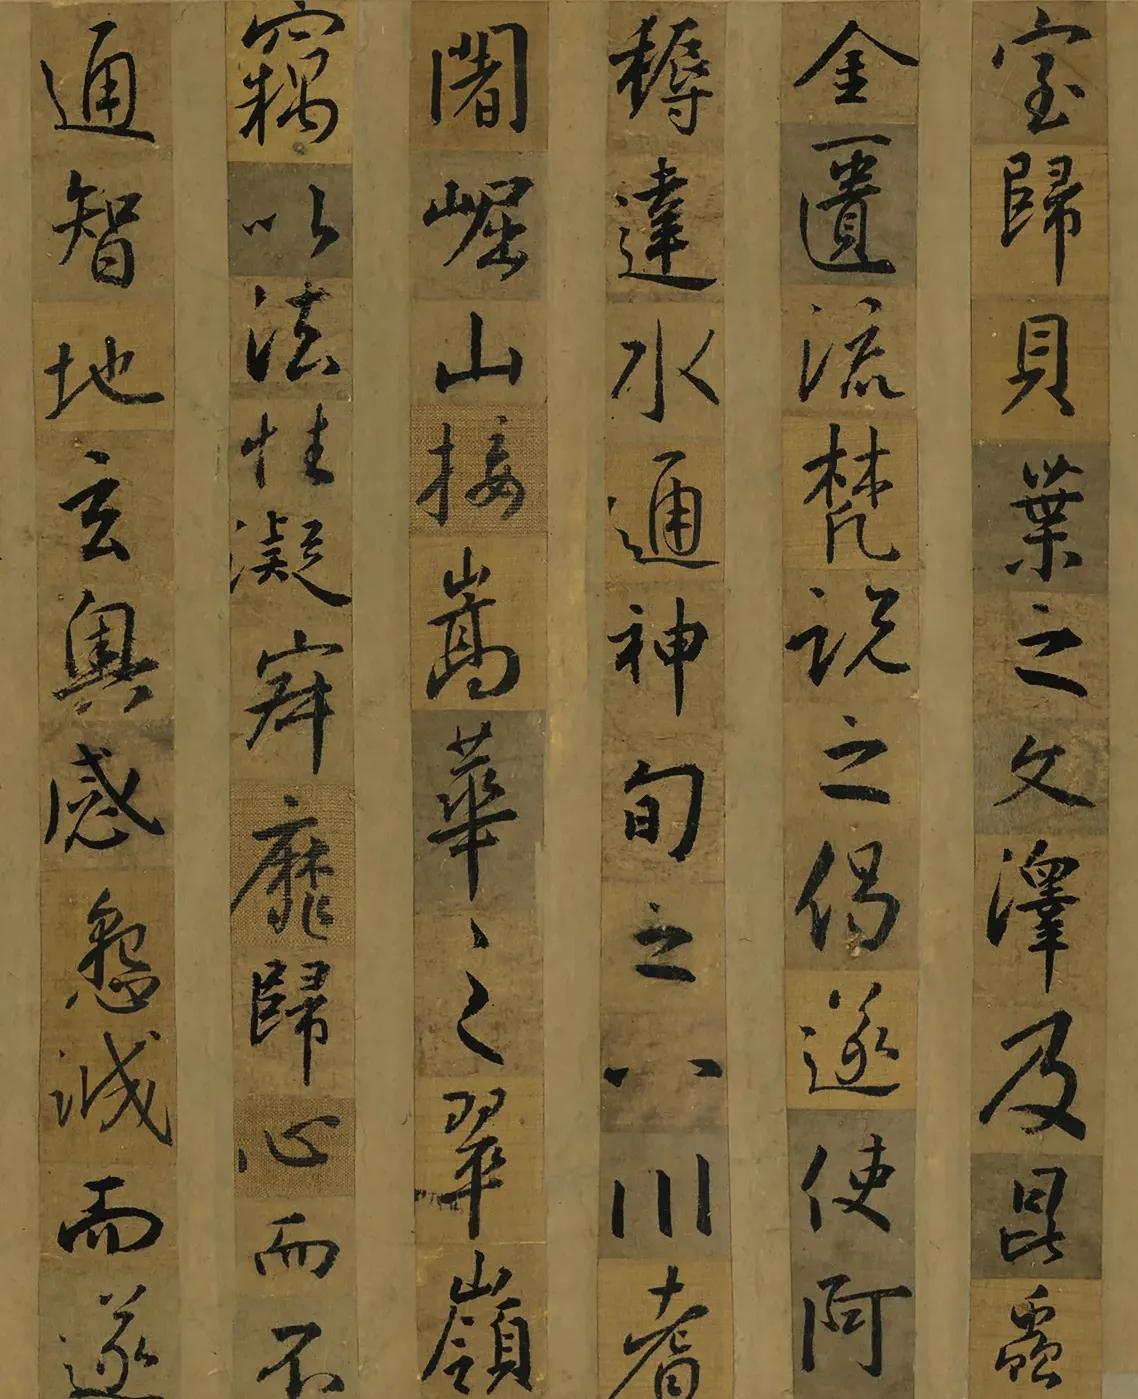 室歸貝葉之文澤及昆蟲
金匱流梵説之偈遂使阿
耨達水通神甸之八川耆
闍崛山接嵩華之翠嶺
竊以法性凝寂靡歸心而不
通智地玄奧感懇誠而遂